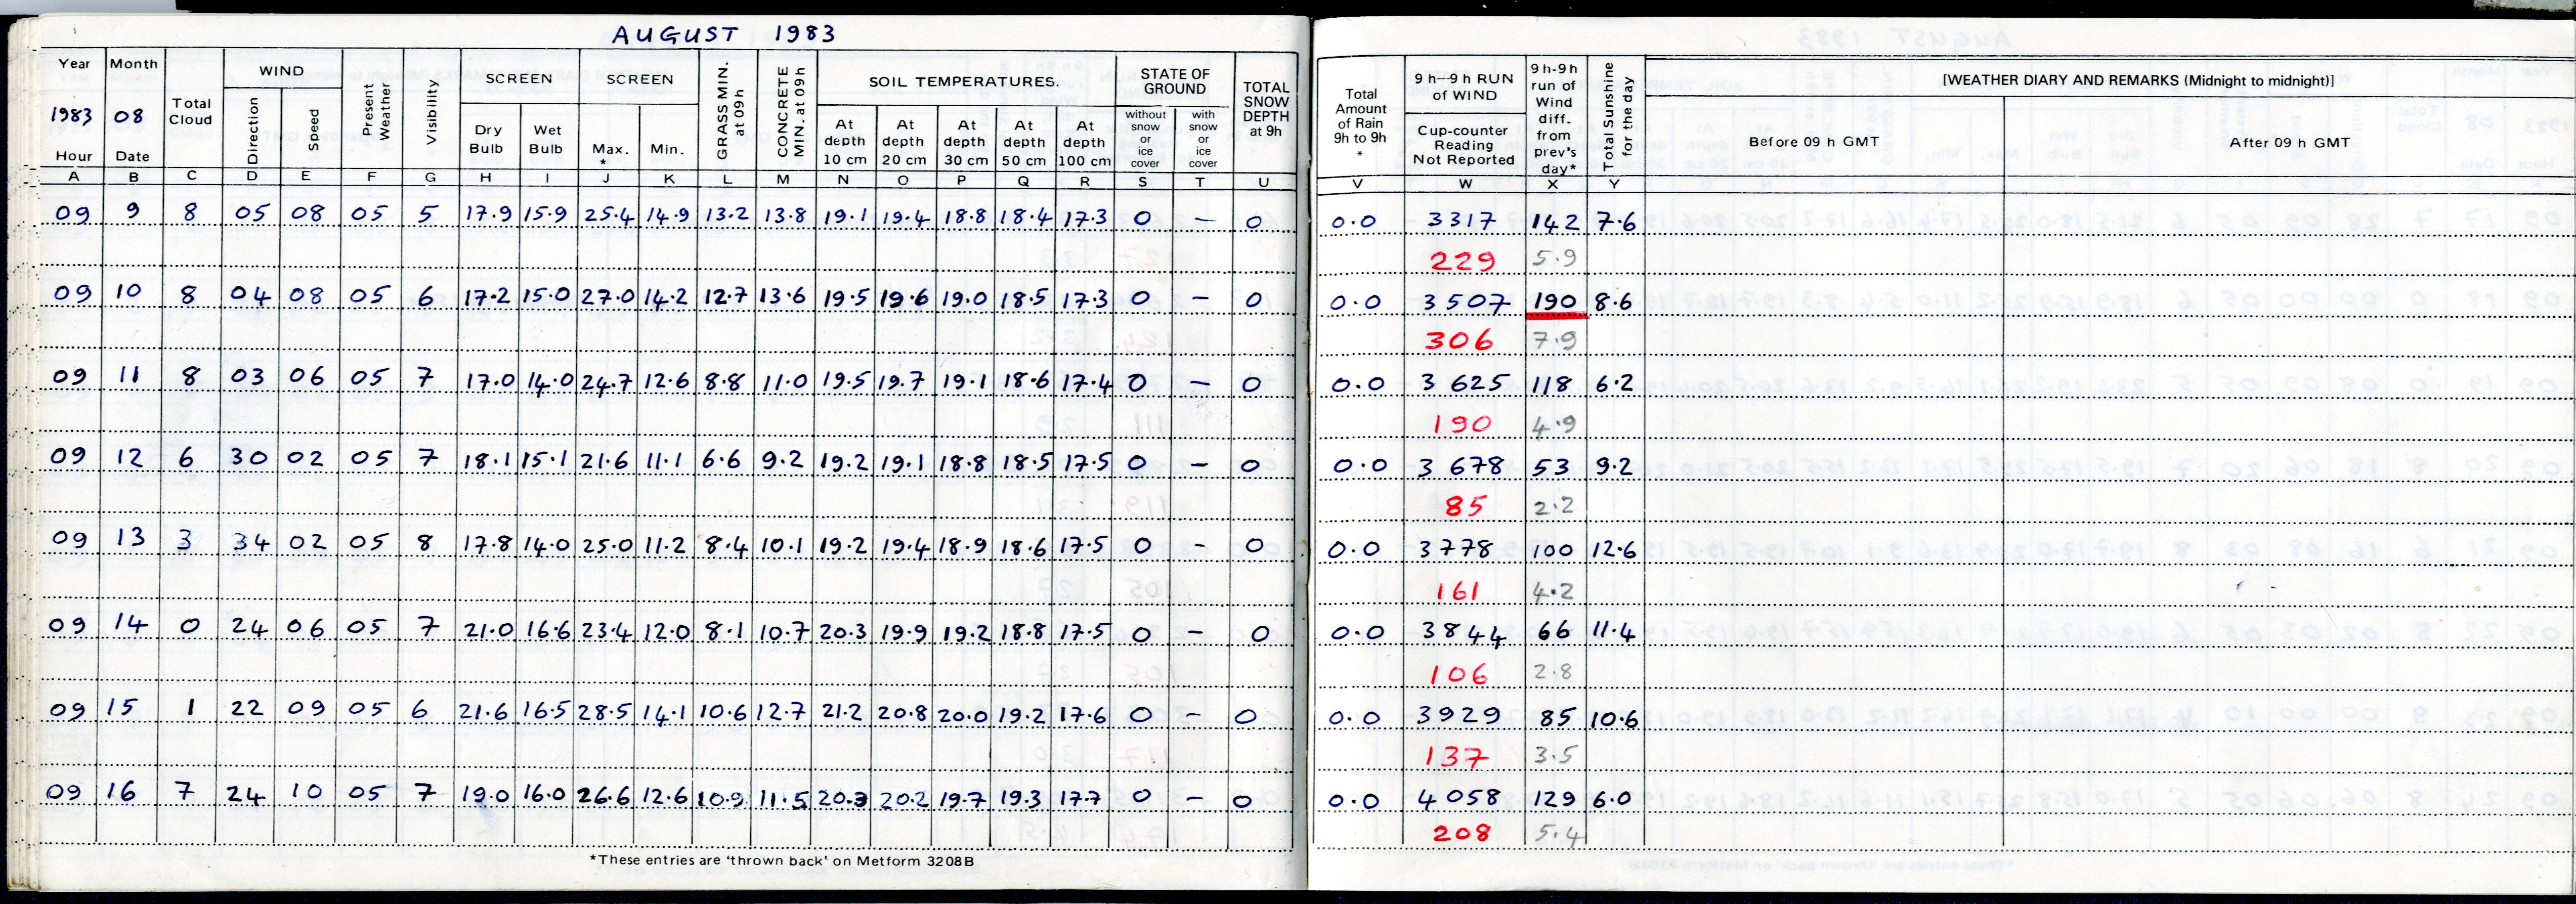 AUGUST 1983
Year Month Total Cloud WIND Present Weather Visibility SCREEN SCREEN GRASS MIN. at 09h CONCRETE MIN. at 09h SOIL TEMPERATURES. STATE OF GROUND TOTAL SNOW DEPTH at 9h Total Amount of Rain 9h to 9h * 9h—9h RUN of WIND 9h-9h run of Wind diff. from prev's day* Total Sunshine for the day [WEATHER DIARY AND REMARKS (Midnight to midnight)]
1983 08 Direction Speed Dry Bulb Wet Bulb Max. * Min. At depth 10 cm At depth 20 cm At depth 30 cm At depth 50 cm At depth 100 cm without snow or ice cover with snow or ice cover Cup-counter Reading Not Reported Before 09 h GMT After 09 h GMT
Hour Date
A B C D E F G H I J K L M N O P Q R S T U V W X Y
09 9 8 05 08 05 5 17.9 15.9 25.4 14.9 13.2 13.8 19.1 19.4 18.8 18.4 17.3 0 — 0 0.0 3317 142 7.6
229 5.9
09 10 8 04 08 05 6 17.2 15.0 27.0 14.2 12.7 13.6 19.5 19.6 19.0 18.5 17.3 0 — 0 0.0 3507 190 8.6
306 7.9
09 11 8 03 06 05 7 17.0 14.0 24.7 12.6 8.8 11.0 19.5 19.7 19.1 18.6 17.4 0 — 0 0.0 3625 118 6.2
190 4.9
09 12 6 30 02 05 7 18.1 15.1 21.6 11.1 6.6 9.2 19.2 19.1 18.8 18.5 17.5 0 — 0 0.0 3678 53 9.2
85 2.2
09 13 3 34 02 05 8 17.8 14.0 25.0 11.2 8.4 10.1 19.2 19.4 18.9 18.6 17.5 0 — 0 0.0 3778 100 12.6
161 4.2
09 14 0 24 06 05 7 21.0 16.6 23.4 12.0 8.1 10.7 20.3 19.9 19.2 18.8 17.5 0 — 0 0.0 3844 66 11.4
106 2.8
09 15 1 22 09 05 6 21.6 16.5 28.5 14.1 10.6 12.7 21.2 20.8 20.0 19.2 17.6 0 — 0 0.0 3929 85 10.6
137 3.5
09 16 7 24 10 05 7 19.0 16.0 26.6 12.6 10.9 11.5 20.3 20.2 19.7 19.3 17.7 0 — 0 0.0 4058 129 6.0
208 5.4
*These entries are 'thrown back' on Metform 3208B